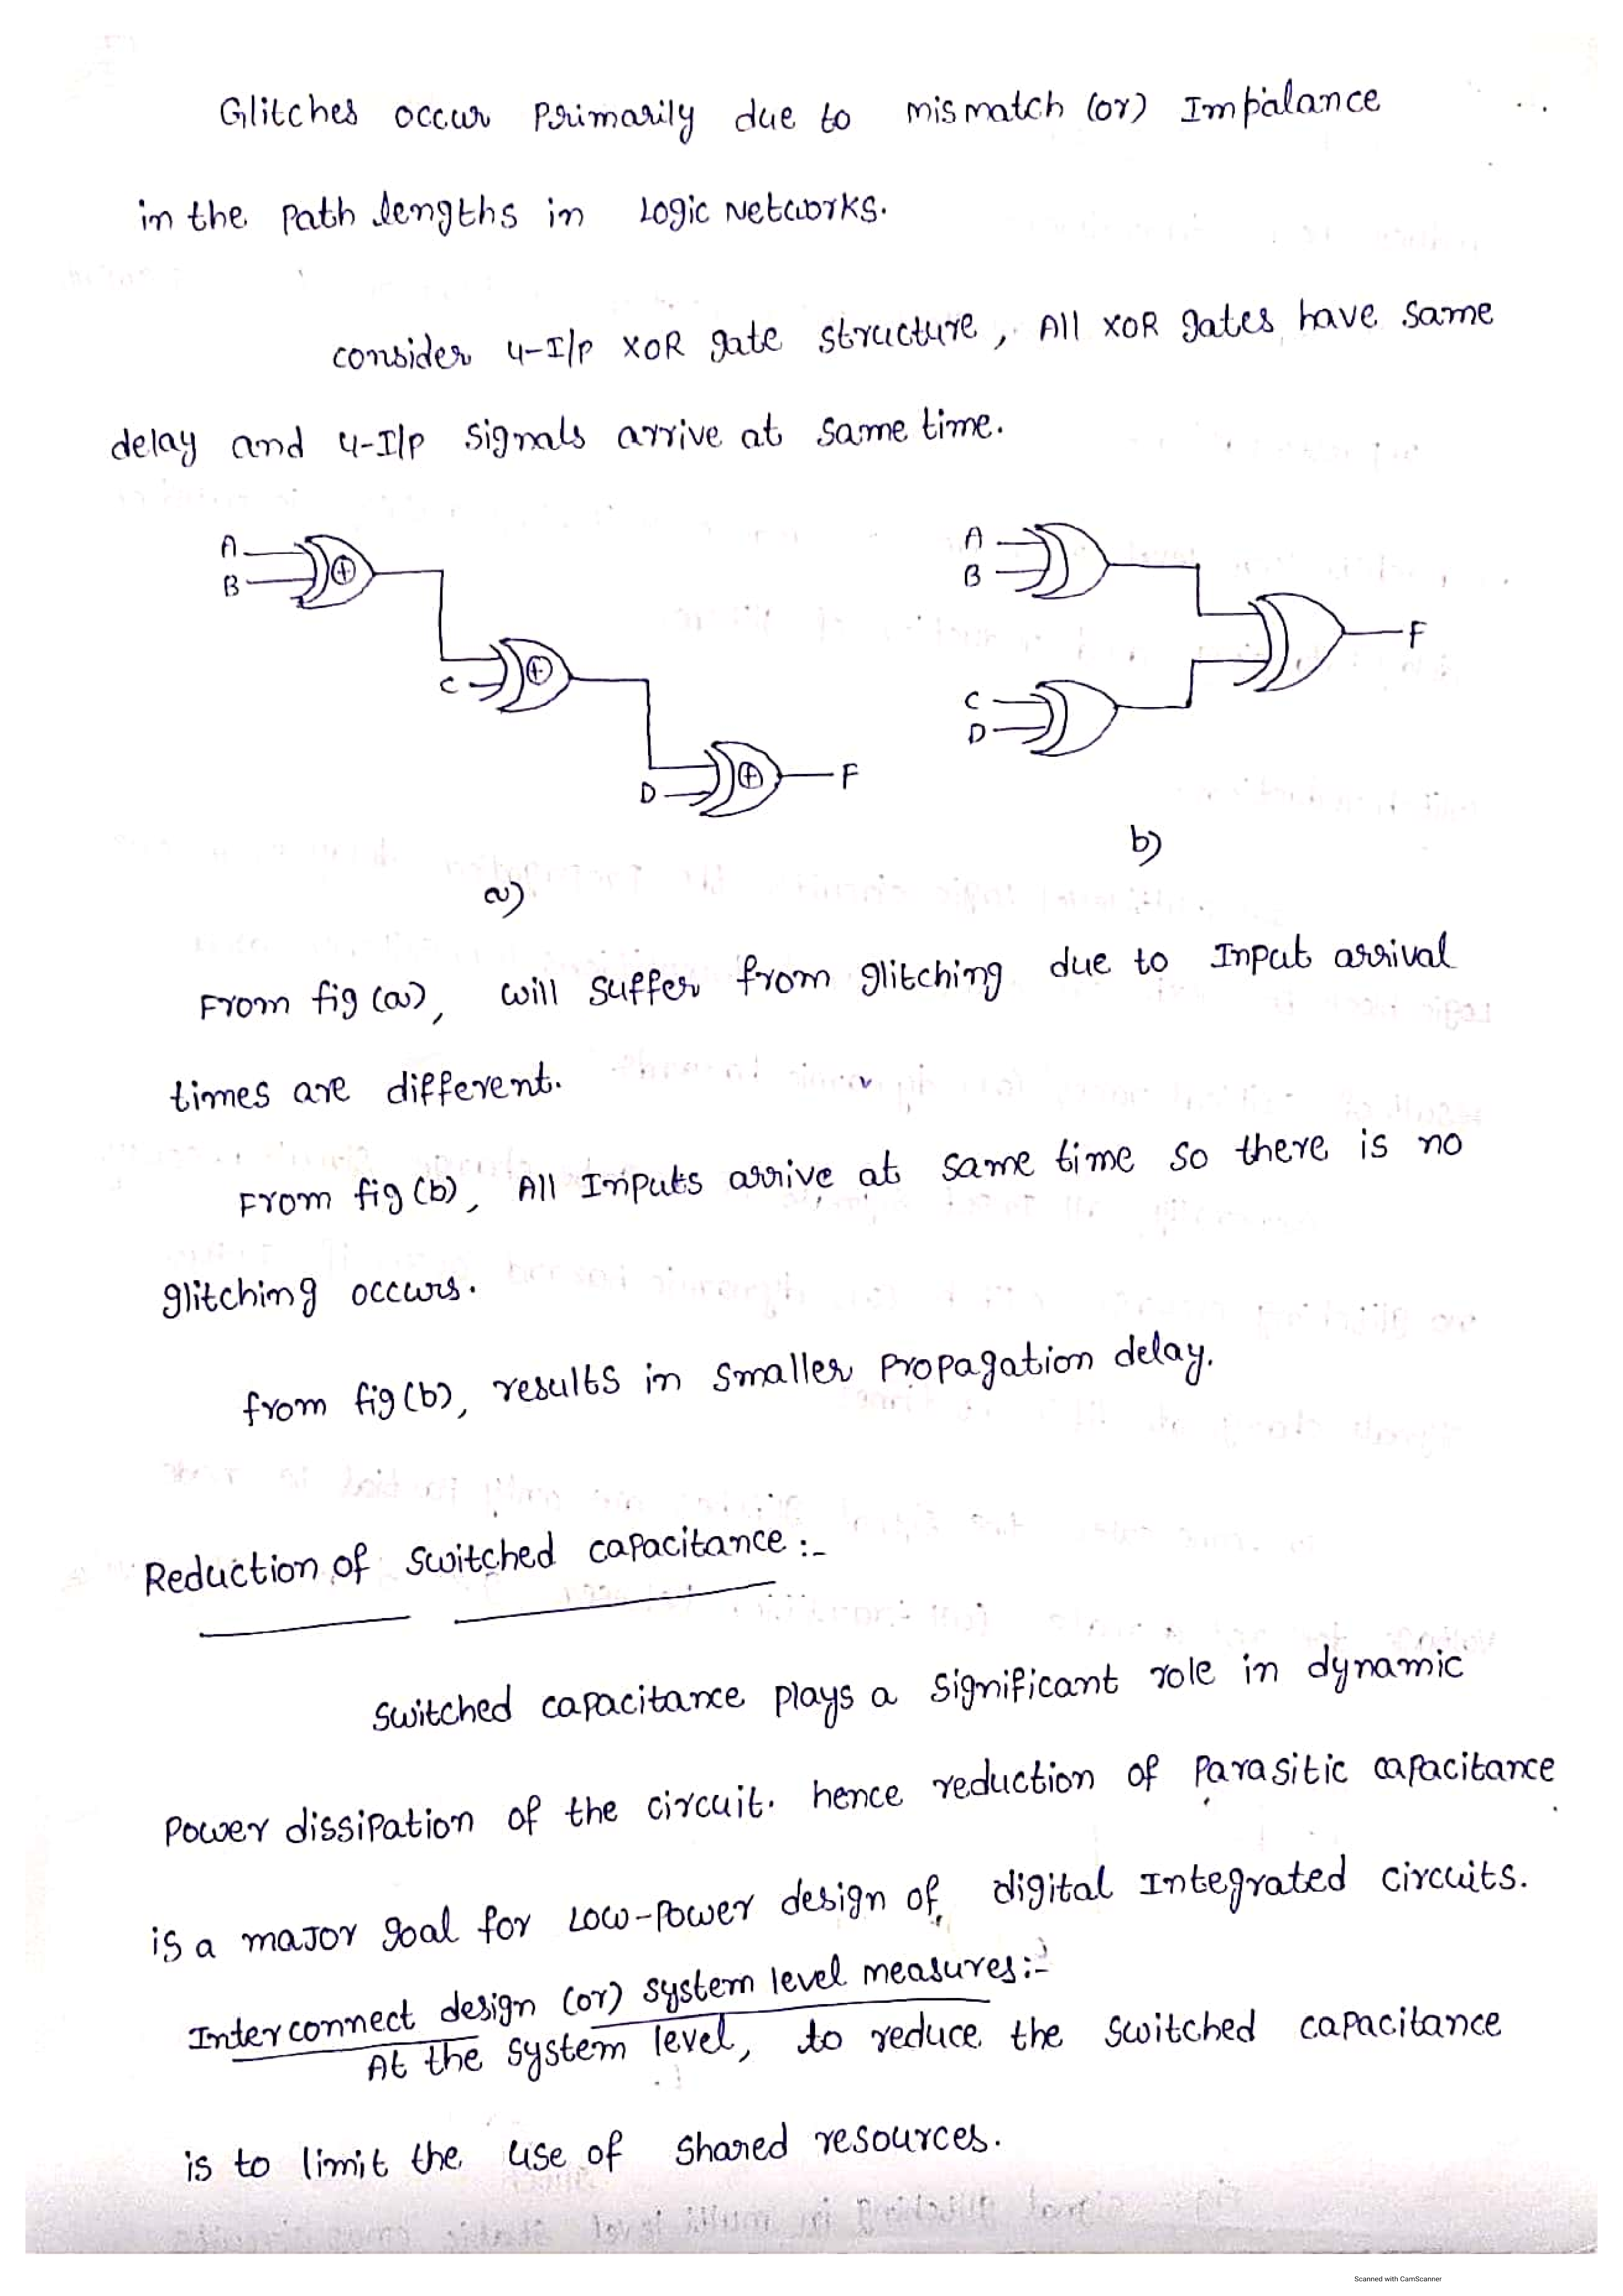 Glitches occur Primarily due to mismatch (or) Imbalance
in the path lengths in Logic Networks.
consider 4-I/p XOR gate structure, All XOR gates have same
delay and 4-I/p signals arrive at same time.
A
B
C
D
F
a)
A
B
C
D
F
b)
From fig (a), will suffer from glitching due to Input arrival
times are different.
From fig (b), All Inputs arrive at same time so there is no
glitching occurs.
from fig (b), results in smaller propagation delay.
Reduction of switched capacitance :-
switched capacitance plays a significant role in dynamic
power dissipation of the circuit. hence reduction of parasitic capacitance
is a major goal for Low-power design of digital Integrated circuits.
Interconnect design (or) system level measures:-
At the system level, to reduce the switched capacitance
is to limit the use of shared resources.
Scanned with CamScanner